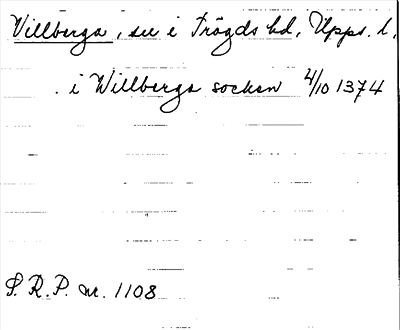 Villberga, su i Trögds hd, Upps. l.
i Willberga socken 4/10 1374
S. R. P. nr. 1108